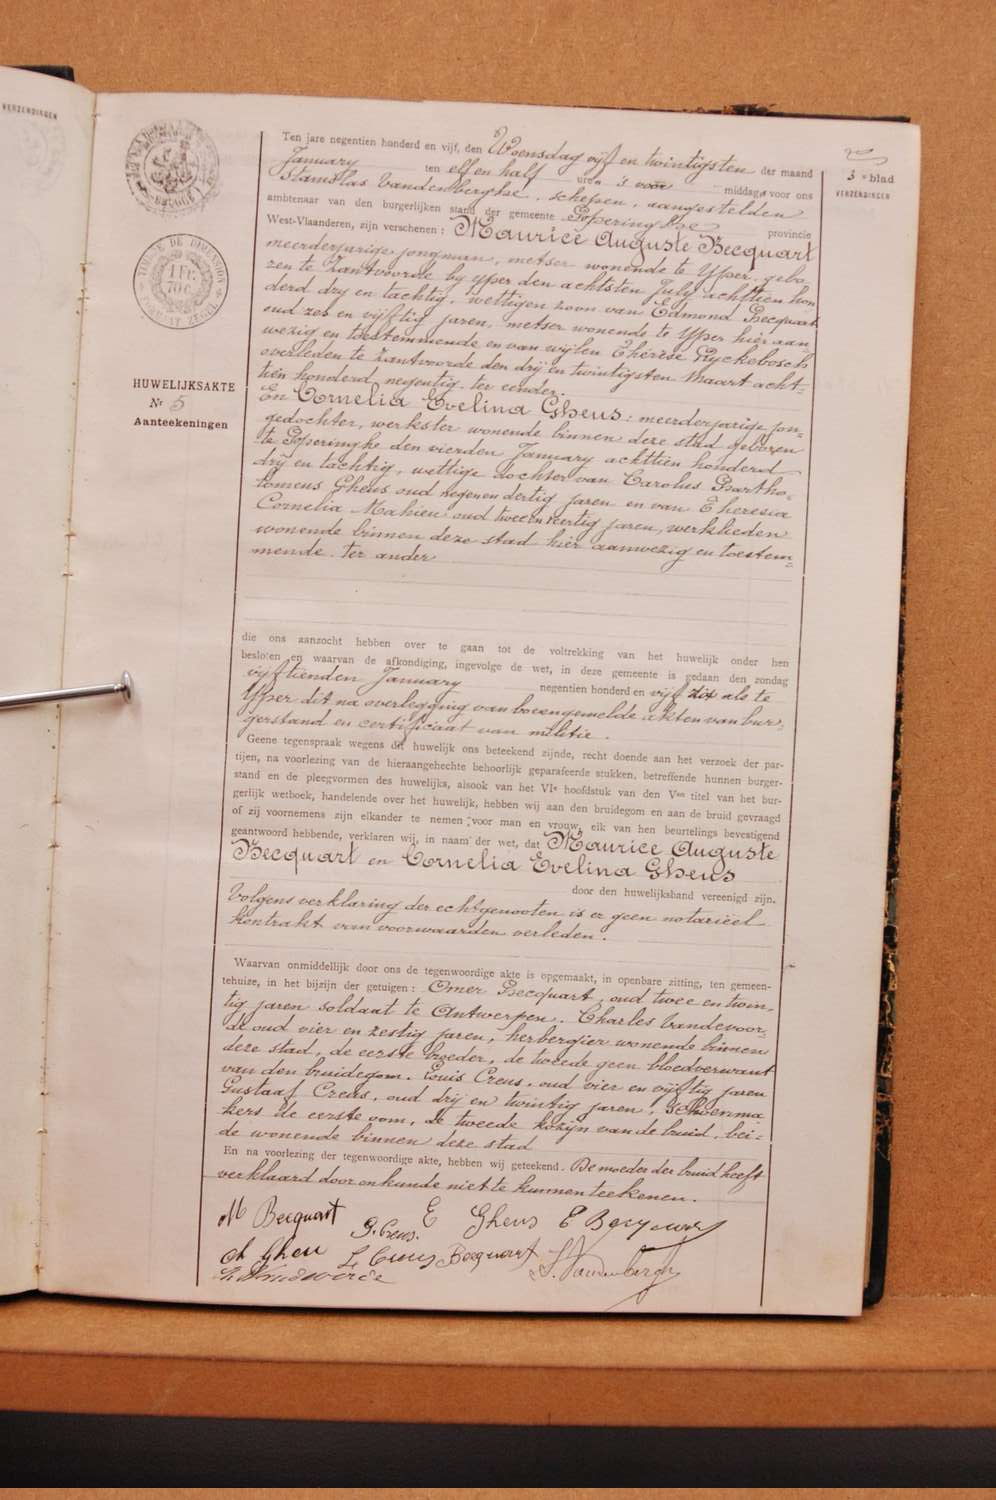 VERZENDINGEN
TIMBRE DE DIMENSION
1 FR.
70 C.
FORMAAT ZEGEL
BRUGGE
3e blad
VERZENDINGEN
HUWELIJKSAKTE
Nr 5
Aanteekeningen
Ten jare negentien honderd en vijf, den Woensdag vijf en twintigsten der maand
January ten elf en half uren 's voor middags voor ons
Stanislas Vandenberghe, schepen, aangestelden
ambtenaar van den burgerlijken stand der gemeente Poperinghe provincie
West-Vlaanderen, zijn verschenen : Maurice Auguste Becquart
meerderjarige jongman, metser wonende te Yper, gebo-
ren te Zantvoorde by Yper den achtsten July achttien hon
derd dry en tachtig, wettigen zoon van Edmond Becquart
oud zes en vijftig jaren, metser wonende te Yper hier aan-
wezig en toestemmende en van wijlen Thérèse Ryckebosch
overleden te Zantvoorde den drij en twintigsten Maart acht-
tien honderd negentig. ter eender.
En Cornelia Evelina Gheus : meerderjarige jon-
gedochter, werkster wonende binnen deze stad geboren
te Poperinghe den vierden January achttien honderd
drij en tachtig, wettige dochter van Carolus Bartho-
lomeus Gheus oud negen en dertig jaren en van Theresia
Cornelia Mahieu oud twee en veertig jaren, werklieden
wonende binnen deze stad hier aanwezig en toestem-
mende. ter ander
die ons aanzocht hebben over te gaan tot de voltrekking van het huwelijk onder hen
besloten en waarvan de afkondiging, ingevolge de wet, in deze gemeente is gedaan den zondag
vijftienden January negentien honderd en vijf zoo als te
Yper dit na overlegging van bovengemelde akten van bur-
gerstand en certificaat van militie.
Geene tegenspraak wegens dit huwelijk ons beteekend zijnde, recht doende aan het verzoek der par-
tijen, na voorlezing van de hieraangehechte behoorlijk geparafeerde stukken, betreffende hunnen burger-
stand en de pleegvormen des huwelijks, alsook van het VIe hoofdstuk van den Ven titel van het bur-
gerlijk wetboek, handelende over het huwelijk, hebben wij aan den bruidegom en aan de bruid gevraagd
of zij voornemens zijn elkander te nemen voor man en vrouw, elk van hen beurtelings bevestigend
geantwoord hebbende, verklaren wij, in naam der wet, dat Maurice Auguste
Becquart en Cornelia Evelina Gheus
door den huwelijksband vereenigd zijn.
Volgens verklaring der echtgenooten is er geen notariëel
kontrakt van voorwaarden verleden.
Waarvan onmiddellijk door ons de tegenwoordige akte is opgemaakt, in openbare zitting, ten gemeen-
tehuize, in het bijzijn der getuigen : Omer Becquart, oud twee en twin-
tig jaren soldaat te Antwerpen. Charles Vandevoor-
de oud vier en zestig jaren, herbergier wonende binnen
deze stad, de eerste broeder, de tweede geen bloedverwant
van den bruidegom. Louis Creus, oud vier en vijftig jaren
Gustaaf Creus, oud drij en twintig jaren, schoenma
kers de eerste oom, de tweede kozijn van de bruid, bei-
de wonende binnen deze stad
En na voorlezing der tegenwoordige akte, hebben wij geteekend. De moeder der bruid heeft
verklaard door onkunde niet te kunnen teekenen.
M Becquart E Gheus E Becquart
G. Creus.
Gheu L Creus Becquart S. Vandenberghe